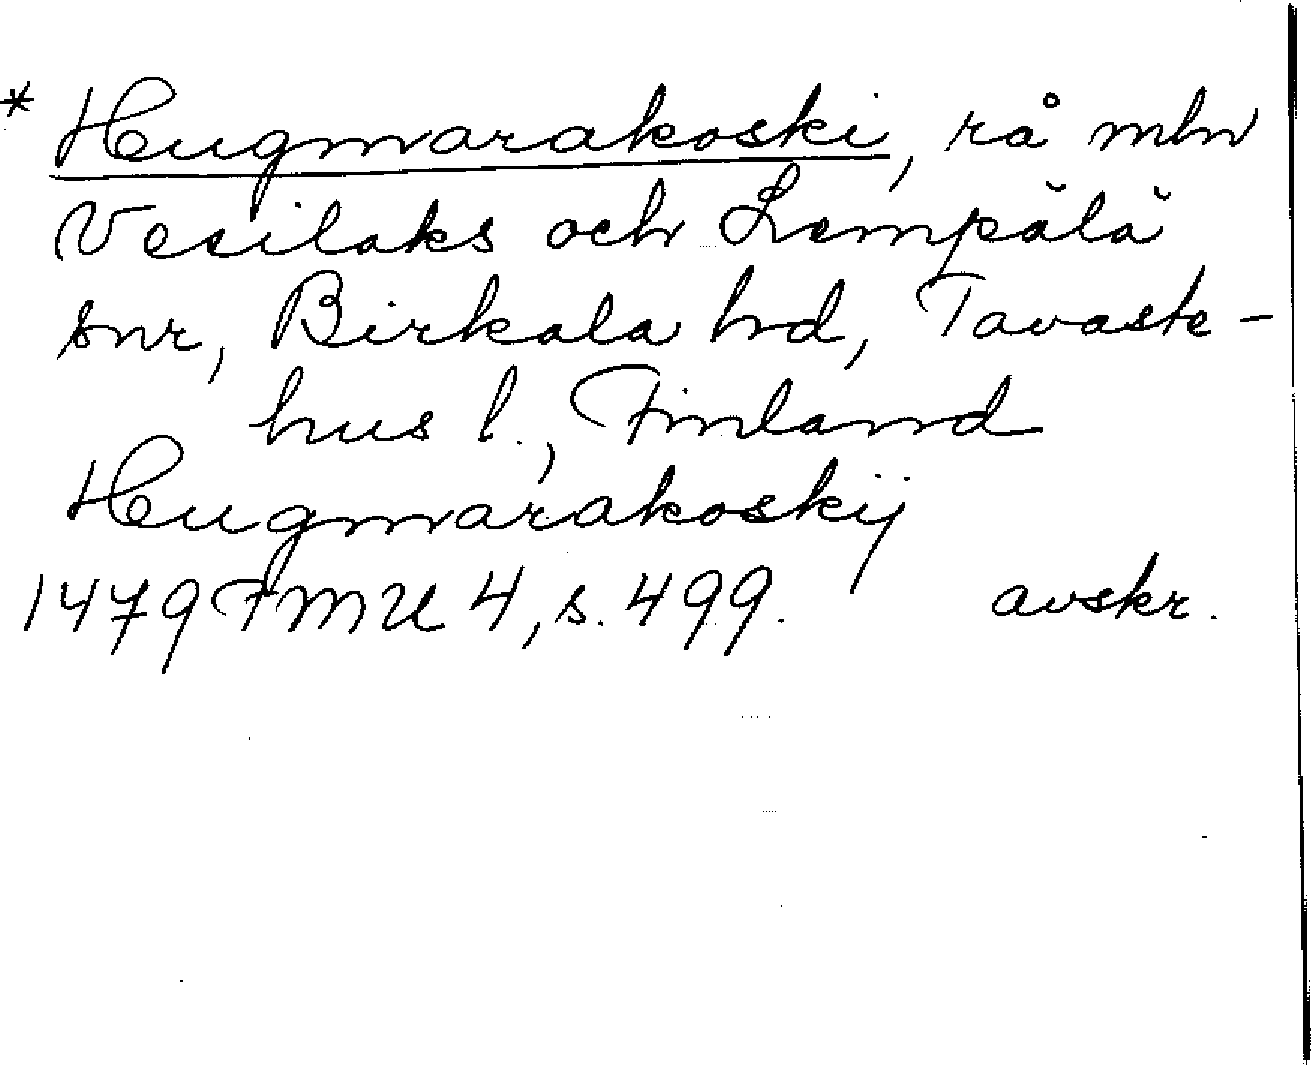 * Heugmarakoski, rå mln
Vesilaks och Lempälä
snr, Birkala hd, Tavaste-
hus l., Finland
Heugmarakoskij
1479 FMU 4, s. 499. avskr.